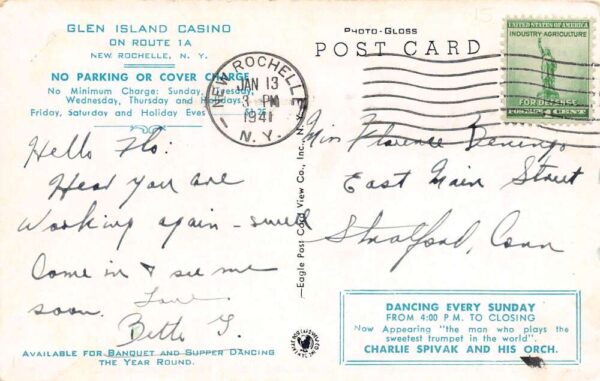 GLEN ISLAND CASINO
ON ROUTE 1A
NEW ROCHELLE, N. Y.
NO PARKING OR COVER CHARGE
No Minimum Charge: Sunday, Tuesday,
Wednesday, Thursday and Holidays.
Friday, Saturday and Holiday Eves
PHOTO-GLOSS
POST CARD
NEW ROCHELLE
JAN 13
3 PM
1941
N.Y.
UNITED STATES OF AMERICA
INDUSTRY-AGRICULTURE
FOR DEFENSE
Hello Flo:
Hear you are
working again - swell
Come in & see me
soon.
Love
Bette G.
—Eagle Post Card View Co., Inc., N.Y.—
Miss Florence
East Main Street
Stratford, Conn
DANCING EVERY SUNDAY
FROM 4:00 P. M. TO CLOSING
Now Appearing "the man who plays the
sweetest trumpet in the world".
CHARLIE SPIVAK AND HIS ORCH.
AVAILABLE FOR BANQUET AND SUPPER DANCING
THE YEAR ROUND.